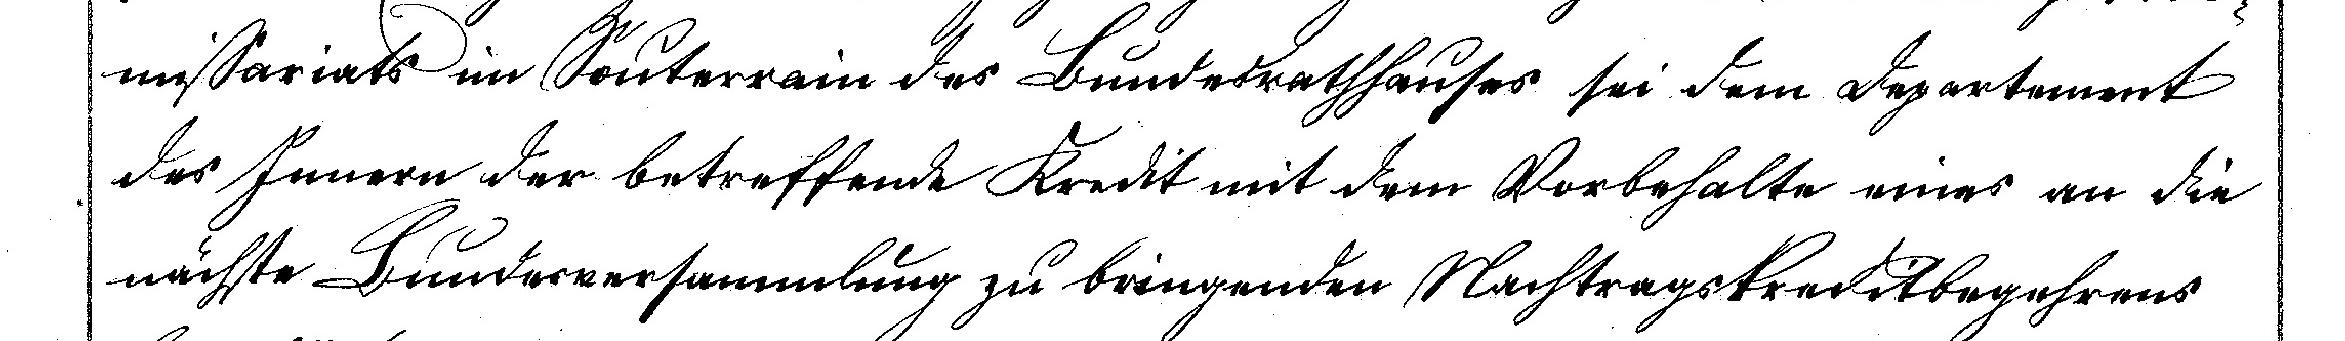 missariats im Souterrain des Bundesrathhauses sei dem Departement
des Innern der betreffende Kredit mit dem Vorbehalte eines an die
nächste Bundesversammlung zu bringenden Nachtragskreditbegehrens